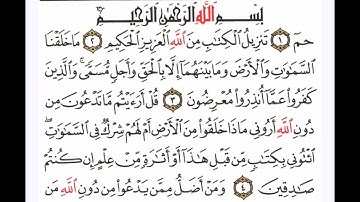 بِسْمِ اللَّهِ الرَّحْمَٰنِ الرَّحِيمِ
حمٓ ١ تَنزِيلُ الْكِتَابِ مِنَ اللَّهِ الْعَزِيزِ الْحَكِيمِ ٢ مَا خَلَقْنَا
السَّمَٰوَٰتِ وَالْأَرْضَ وَمَا بَيْنَهُمَا إِلَّا بِالْحَقِّ وَأَجَلٍ مُّسَمًّى ۚ وَالَّذِينَ
كَفَرُوا عَمَّا أُنذِرُوا مُعْرِضُونَ ٣ قُلْ أَرَءَيْتُم مَّا تَدْعُونَ مِن
دُونِ اللَّهِ أَرُونِي مَاذَا خَلَقُوا مِنَ الْأَرْضِ أَمْ لَهُمْ شِرْكٌ فِي السَّمَٰوَٰتِ ۖ
ائْتُونِي بِكِتَابٍ مِّن قَبْلِ هَٰذَا أَوْ أَثَارَةٍ مِّنْ عِلْمٍ إِن كُنتُمْ
صَادِقِينَ ٤ وَمَنْ أَضَلُّ مِمَّن يَدْعُوا مِن دُونِ اللَّهِ مَن